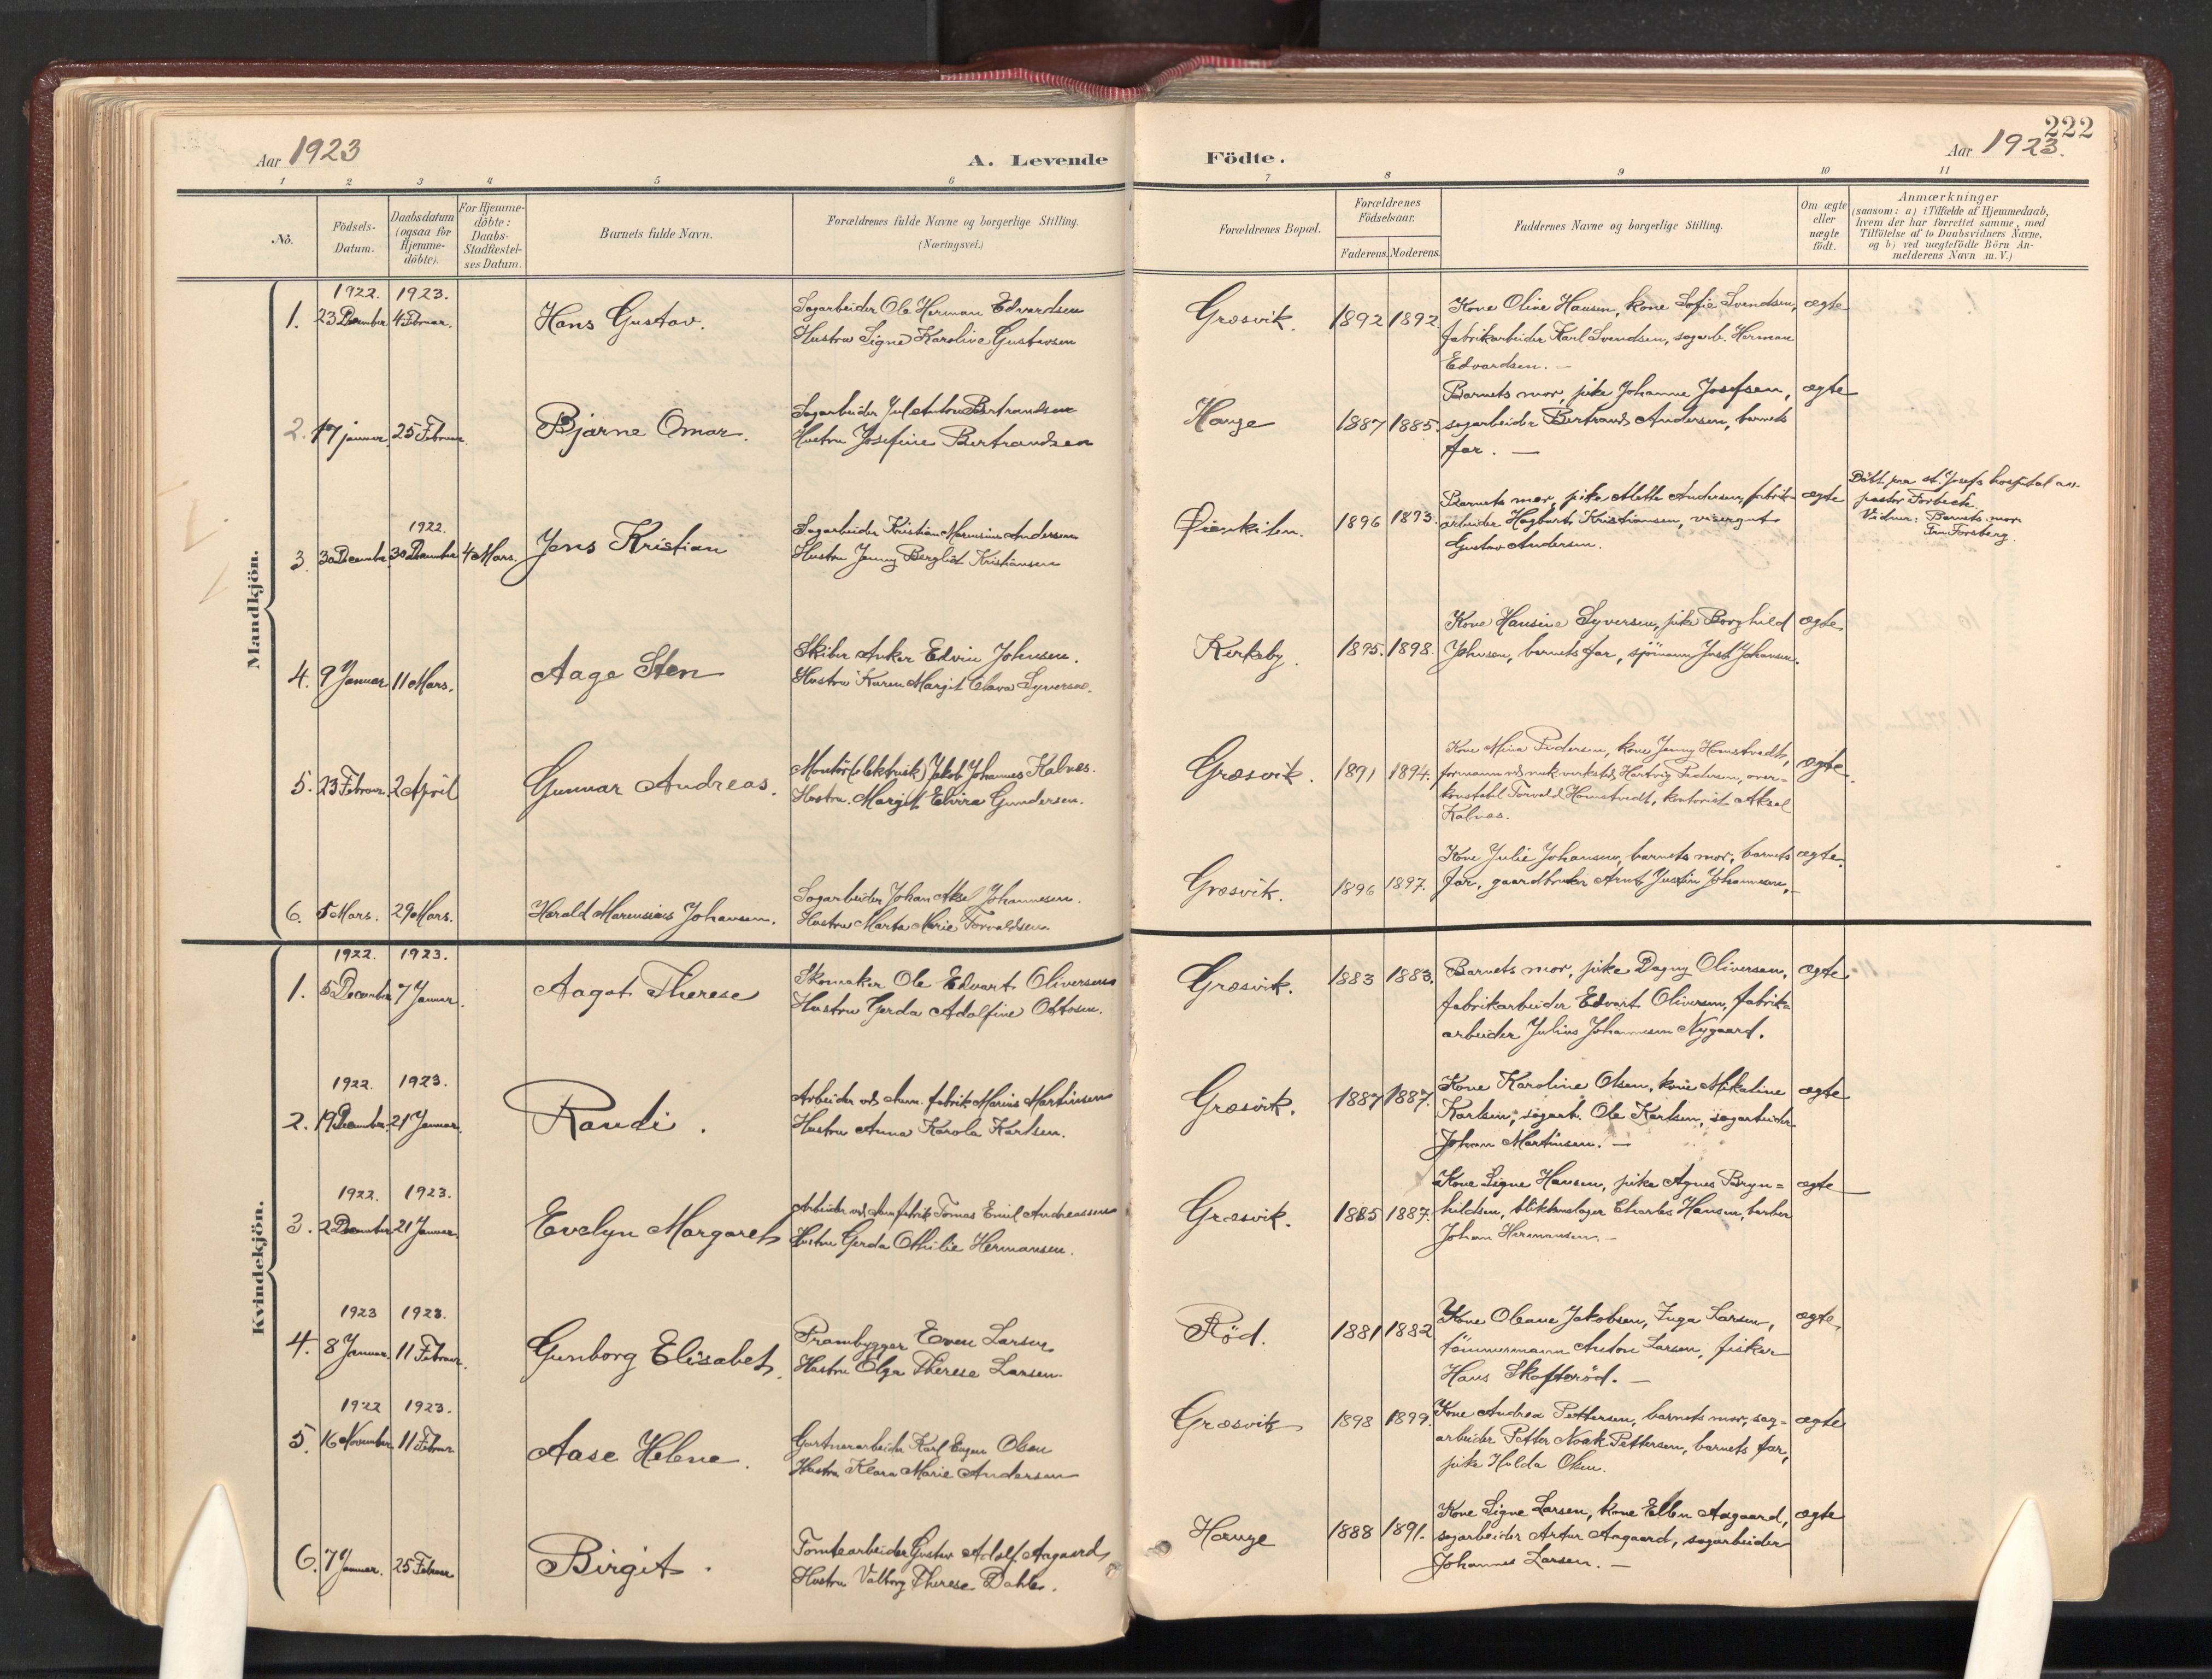 222
Aar 1923
A. Levende
Födte.
Aar 1923.
1 2 3 4 5 6 7 8 9 10 11
No.
Födsels-
Datum.
Daabsdatum
(ogsaa for
Hjemme-
döbte).
For Hjemme-
döbte:
Daabs-
Stadfæstel-
ses Datum.
Barnets fulde Navn.
Forældrenes fulde Navne og borgerlige Stilling.
(Næringsvei.)
Forældrenes Bopæl.
Forældrenes
Födselsaar.
Faderens. Moderens.
Faddernes Navne og borgerlige Stilling.
Om ægte
eller
uægte
födt.
Anmærkninger
(saasom: a) i Tilfælde af Hjemmedaab,
hvem der har forrettet samme, med
Tilföielse af to Daabsvidners Navne.
og b) ved uægtefödte Börn An-
melderens Navn m.V.)
Mandkjön.
1922. 1923.
1. 23 December 4 Februar.
Hans Gustav.
Sagarbeider Ole Herman Edvardsen
Hustru Signe Karoline Gustavsen
Græsvik.
1892 1892.
Kone Oline Hansen, kone Sofie Svendsen,
fabrikarbeider Karl Svendsen, sagarb. Herman
Edvardsen. –
ægte
2. 17 januar. 25 Februar.
Bjarne Omar.
Sagarbeider Jul Anton Bertrandsen
Hustru Josefine Bertrandsen
Hauge
1887 1885.
Barnets mor, pike Johanne Josefsen,
sagarbeider Bertrand Andersen, barnets
far. –
ægte
1922.
3. 30 December 30 December 4 Mars.
Jens Kristian
Sagarbeider Kristian Marensius Andersen
Hustru Jenny Bergliot Kristiansen
Øienkilen.
1896 1893.
Barnets mor, pike Mette Andersen, fabrik-
arbeider Hagbart Kristiansen, visergut
Gustav Andersen.
ægte
Döbt paa st. Josefs hospital av
pastor Forbech.
Vidner: Barnets mor
Fru Forsberg.
4. 9 Januar 11 Mars.
Aage Sten
Skiber Anker Edvin Johnsen.
Hustru Karen Margit Clara Syversen.
Kirkeby.
1895. 1898.
Kone Hansine Syversen, pike Borghild
Johnsen, barnets far, sjömann Just Johansen.
ægte
5. 23 Februar. 2 April
Gunnar Andreas.
Montör (elektrisk) Jakob Johannes Kalnes.
Hustru. Margit Elvira Gundersen.
Græsvik.
1891 1894.
Kone Mina Pedersen, kone Jenny Homstvedt,
formann ved mek. verksted Hartvig Pedersen, over-
konstabel Torvald Homstvedt, kontorist Aksel
Kalnes.
ægte.
6. 5 Mars. 29 Mars.
Harald Marensius Johansen.
Sagarbeider Johan Aksel Johannesen.
Hustru Marta Marie Torvaldsen.
Græsvik.
1896 1897.
Kone Julie Johansen, barnets mor, barnets
far, gaardbruker Arnt Justin Johannesen, –
ægte.
Kvindekjön.
1922. 1923.
1. 5 December 7 Januar.
Aagot Therese
Skomaker Ole Edvart Oliversen
Hustru Gerda Adolfine Ottosen.
Græsvik.
1883 1883.
Barnets mor, pike Dagny Oliversen,
fabrikarbeider Edvart Oliversen, fabrik-
arbeider Julius Johannesen Nygaard.
ægte
1922. 1923.
2. 19 December. 21 Januar.
Randi.
Arbeider ved kem. fabrik Marius Martinsen
Hustru Anna Karola Karlsen.
Græsvik.
1887 1887.
Kone Karoline Olsen, kone Mikaline
Karlsen, sagarb. Ole Karlsen, sagarbeider
Johan Martinsen. –
ægte
1922. 1923.
3. 2 December 21 Januar.
Evelyn Margaret
Arbeider ved kem fabrik Tomas Emil Andreassen
Hustru Gerda Othilie Hermansen.
Græsvik.
1885 1887.
Kone Signe Hansen, pike Agnes Bryn=
hildsen, blikkenslager Charles Hansen, barber
Johan Hermansen. –
ægte
1923 1923.
4. 8 Januar. 11 Februar.
Gunborg Elisabet.
Prambygger Even Larsen
Hustru Olga Therese Larsen.
Röd.
1881 1882
Kone Oleane Jakobsen, Inga Larsen,
tömmermann Anton Larsen, fisker
Hans Skafteröd. –
ægte
1922 1923.
5. 16 November 11 Februar
Aase Helene.
Gartnerarbeider Karl Eugen Olsen
Hustru Klara Marie Andersen
Græsvik
1898 1899.
Kone Andrea Pettersen, barnets mor, sag=
arbeider Petter Noak Pettersen, barnets far,
pike Hulda Olsen.
ægte
6. 7 Januar. 25 Februar
Birgit.
Tomtearbeider Gustav Adolf Aagaard
Hustru Valborg Therese Dahle.
Hauge
1888 1891.
Kone Signe Larsen, kone Ellen Aagaard,
sagarbeider Artur Aagaard, sagarbeider
Johannes Larsen. –
ægte